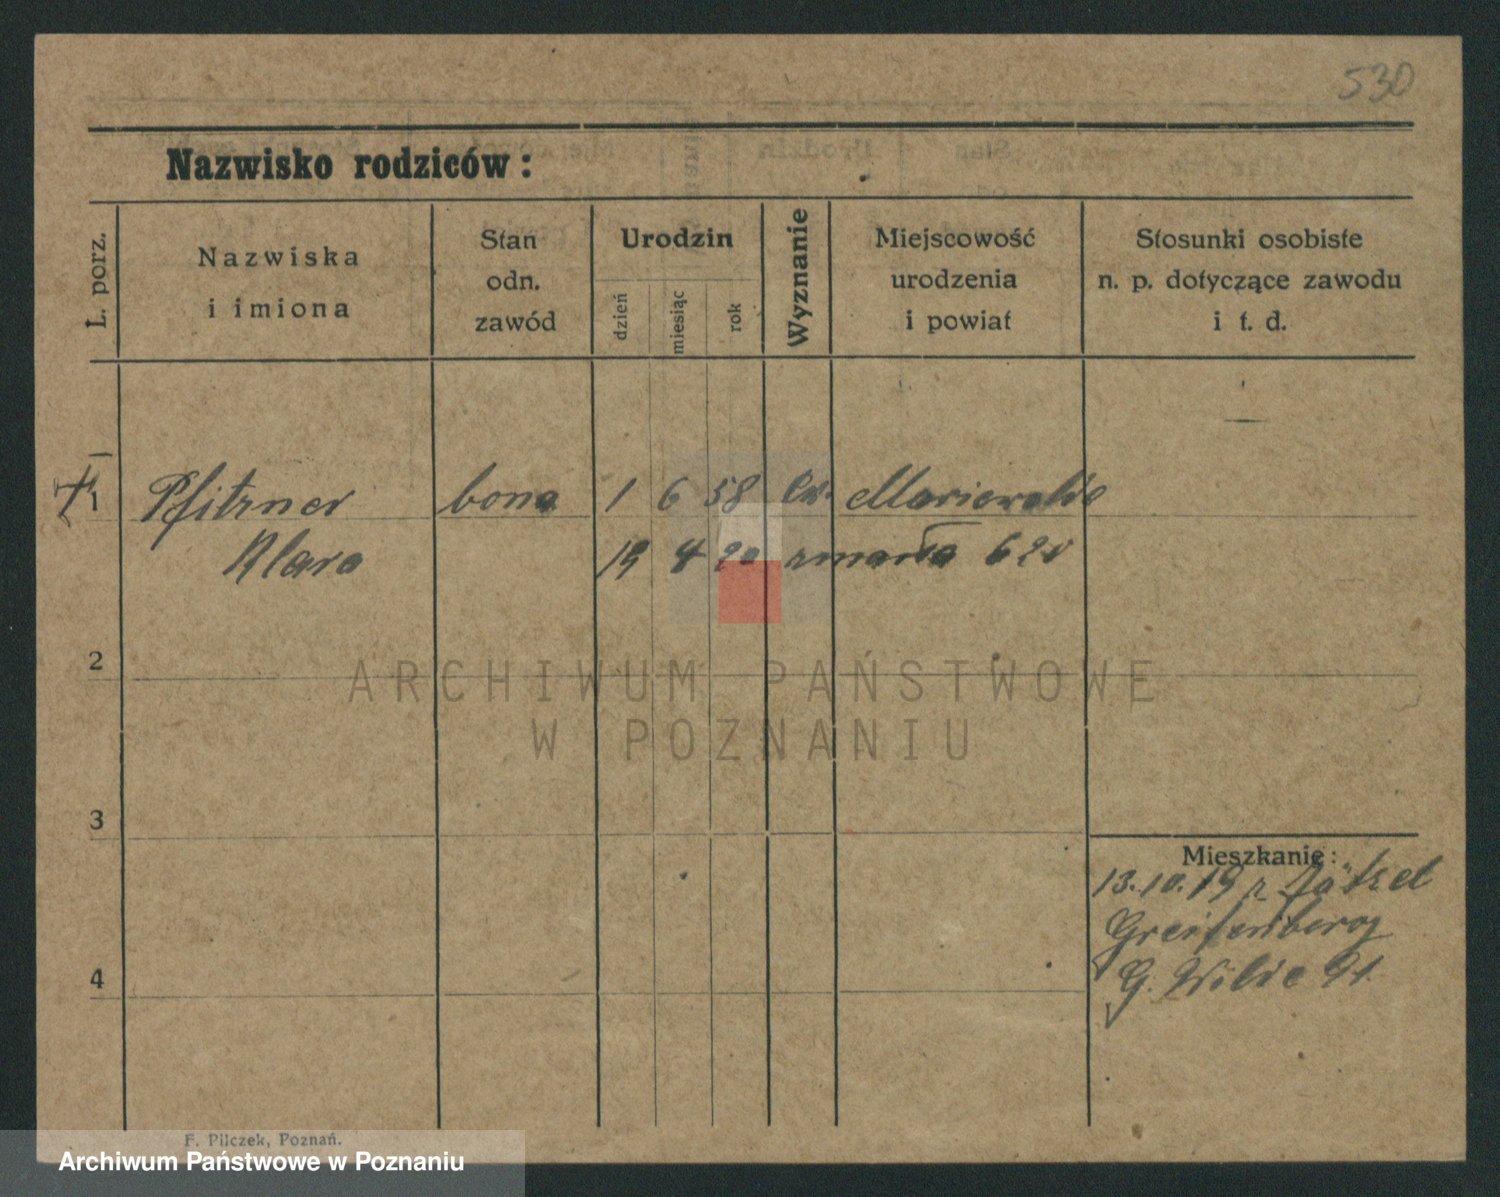 530
Nazwisko rodziców:
L. porz.
Nazwiska
i imiona
Stan
odn.
zawód
Urodzin
dzień
miesiąc
rok
Wyznanie
Miejscowość
urodzenia
i powiat
Stosunki osobiste
n. p. dotyczące zawodu
i t. d.
1 Pfitzner bona 1 6 58 Ew. Marienwalde
Klara 19 4 20 zmarła 620
2
ARCHIWUM PAŃSTWOWE
W POZNANIU
3
Mieszkanie:
13.10.19 z
Greifenberg
4
G. Wilde 91.
F. Pilczek, Poznań.
Archiwum Państwowe w Poznaniu